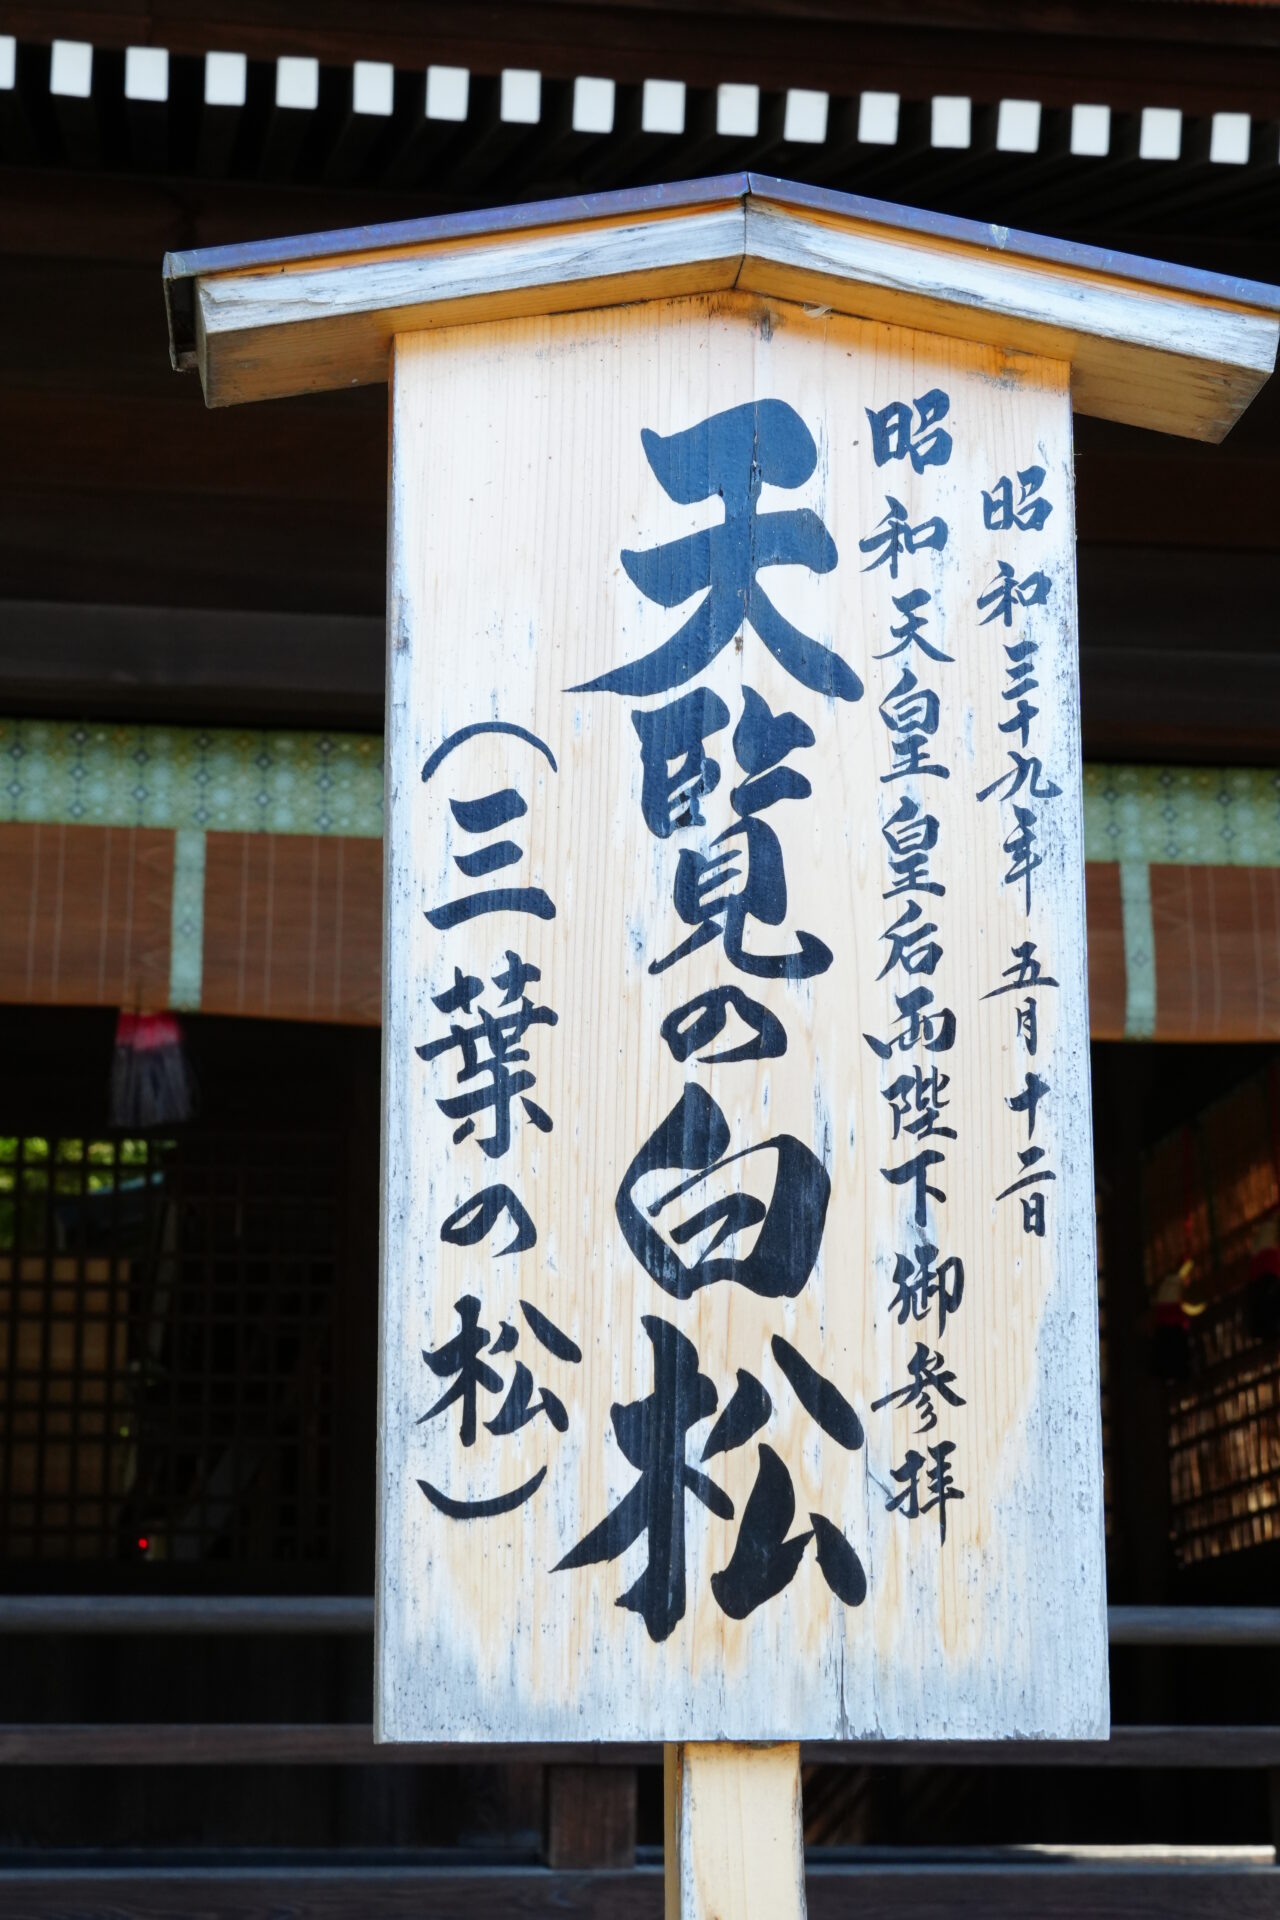 昭和三十九年 五月十二日
昭和天皇皇后両陛下御参拝
天覧の白松
(三葉の松)